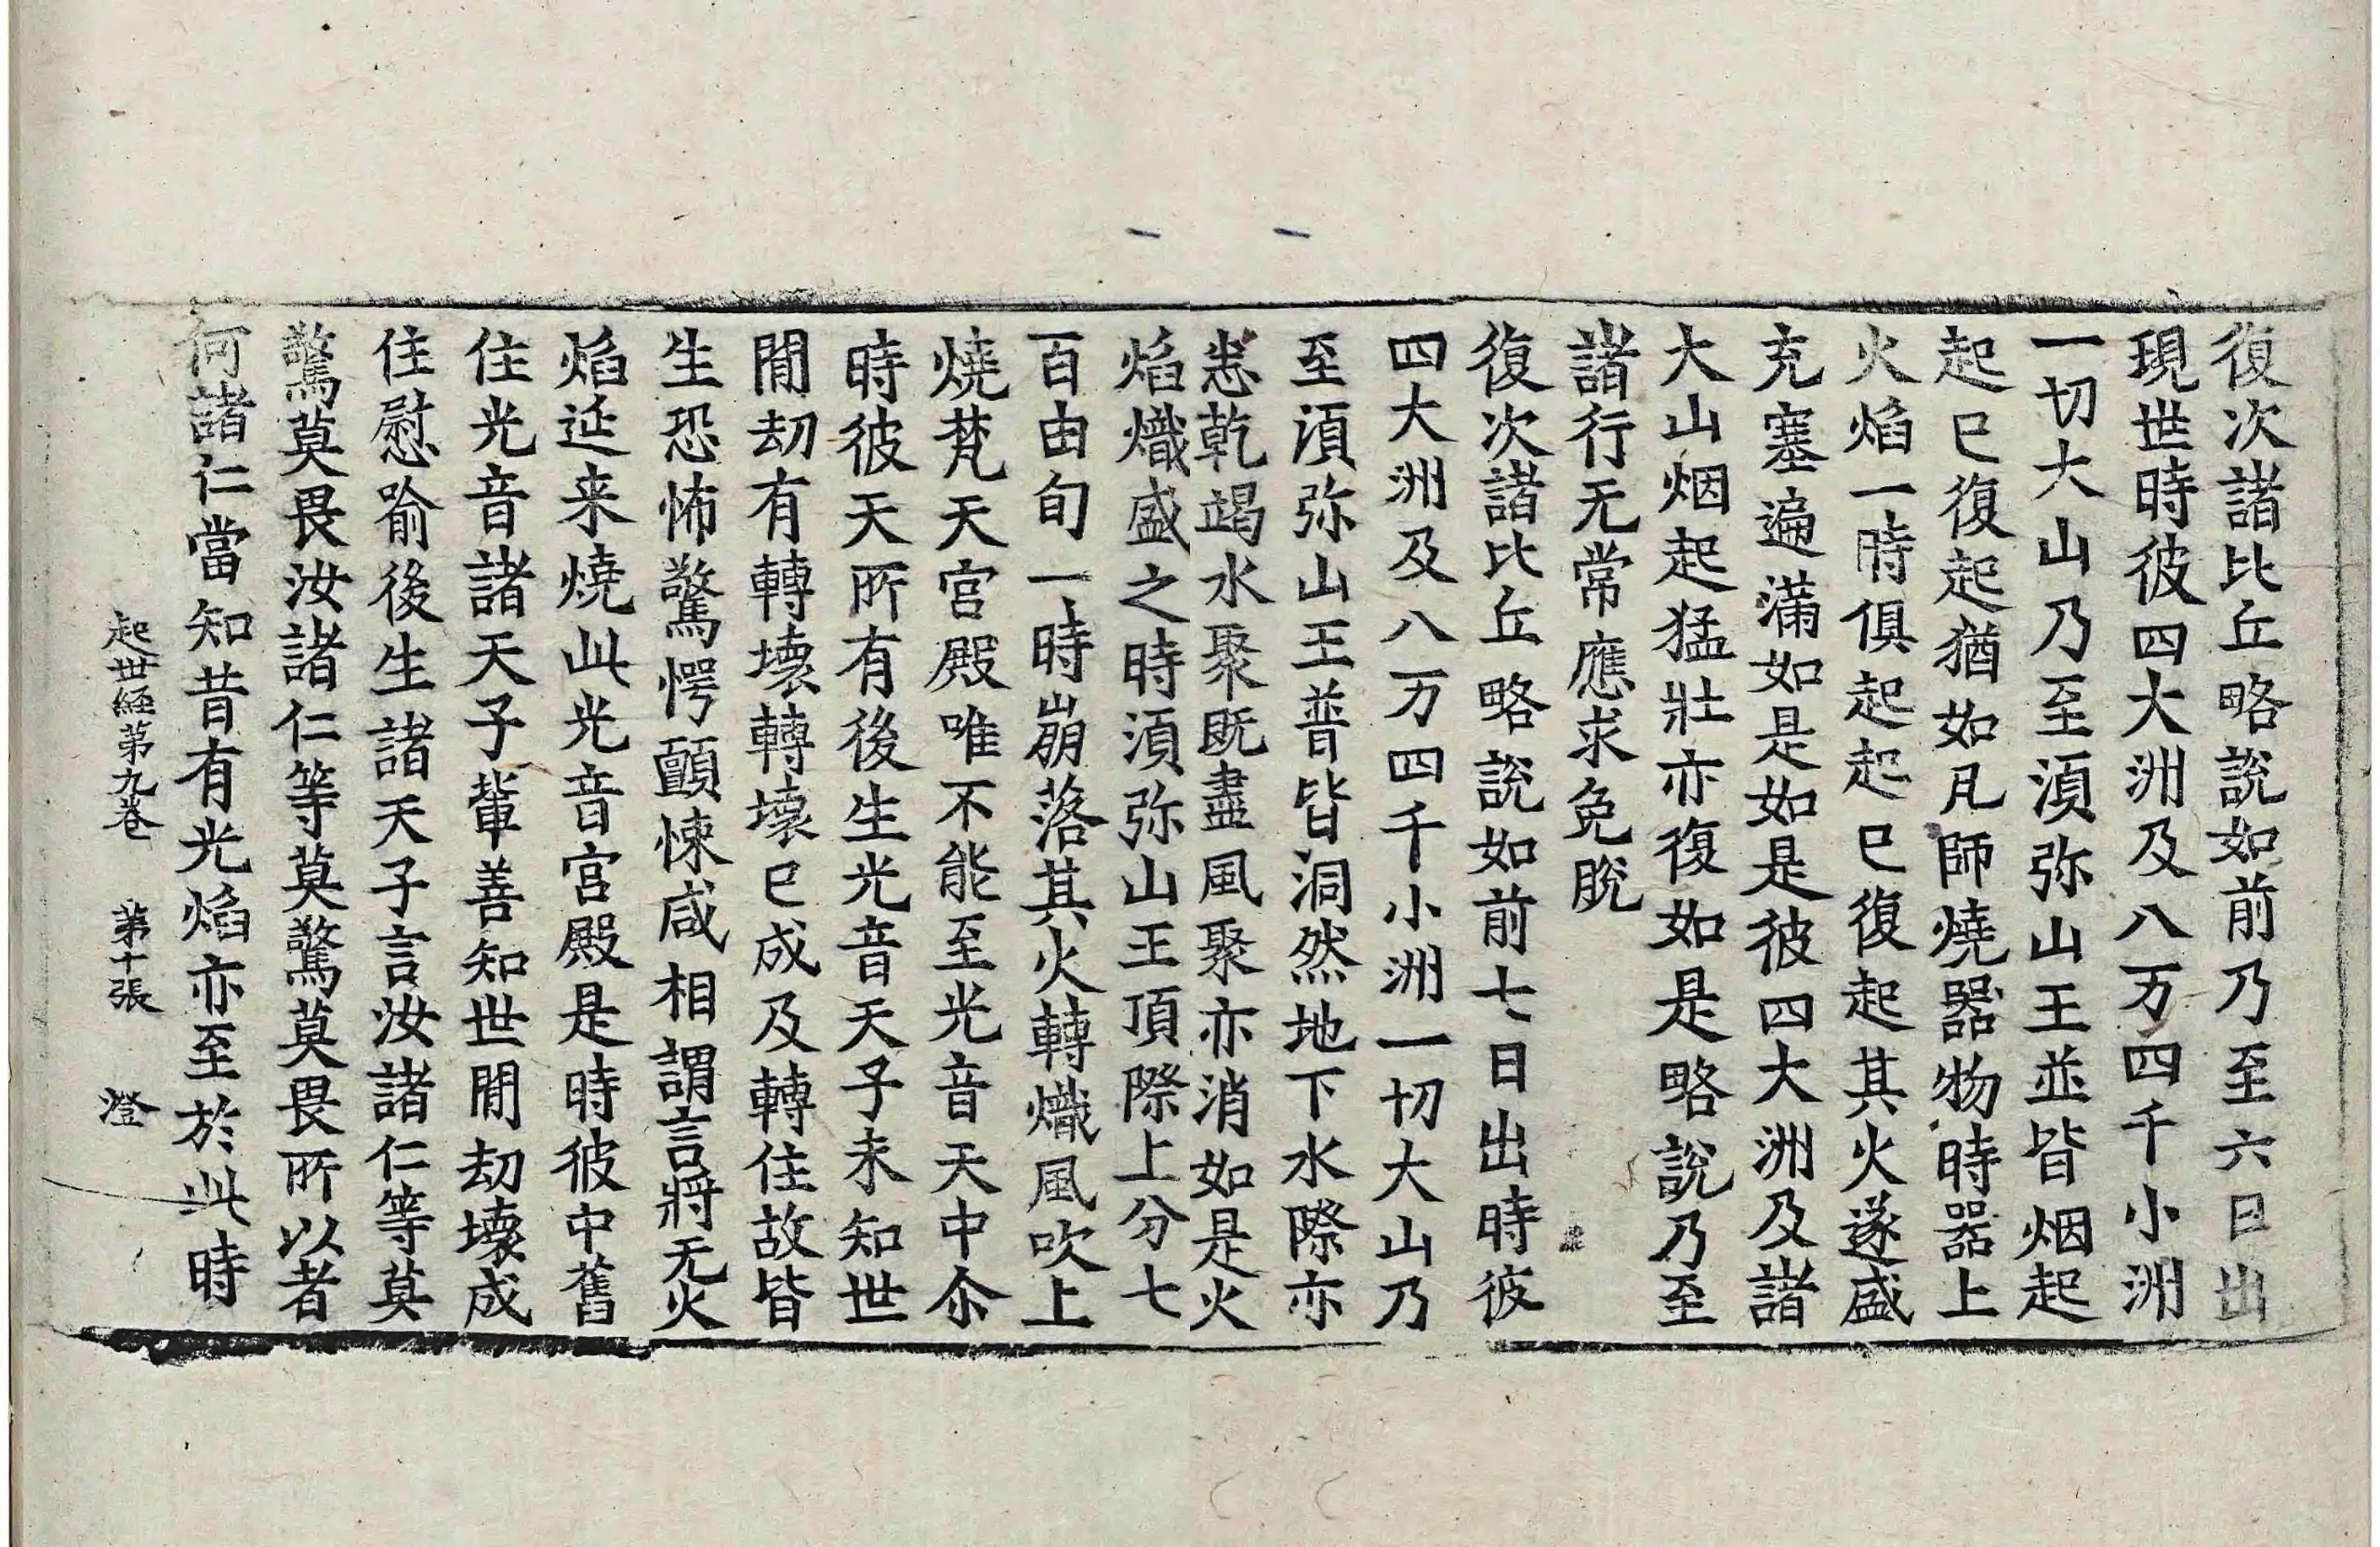 復次諸比丘略說如前乃至六日出
現世時彼四大洲及八万四千小洲
一切大山乃至湏弥山王並皆烟起
起已復起猶如凡師燒器物時器上
火焰一時俱起起已復起其火遂盛
充塞遍滿如是如是彼四大洲及諸
大山烟起猛壯亦復如是略說乃至
諸行无常應求免脫
復次諸比丘略說如前七日出時彼
四大洲及八万四千小洲一切大山乃
至湏弥山王普皆洞然地下水際亦
悉乾竭水聚既盡風聚亦消如是火
焰熾盛之時湏弥山王頂際上分七
百由旬一時崩落其火轉熾風吹上
燒梵天宮殿唯不能至光音天中尒
時彼天所有後生光音天子未知世
閒劫有轉壞轉壞已成及轉住故皆
生恐怖驚愕顫悚咸相謂言將无火
焰延来燒此光音宮殿是時彼中舊
住光音諸天子軰善知世閒劫壞成
住慰喻後生諸天子言汝諸仁等莫
驚莫畏汝諸仁等莫驚莫畏所以者
何諸仁當知昔有光焰亦至於此時
起世經第九卷　第十張　澄